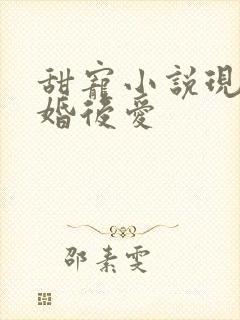 甜寵小說現
婚後愛
邵素雯